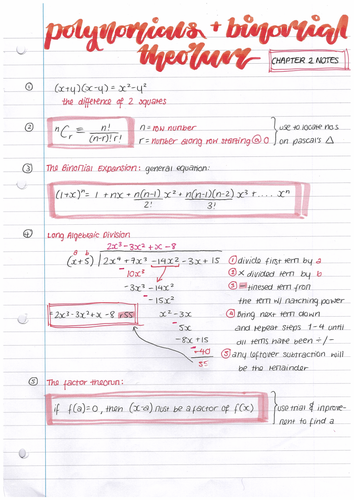 polynomials + binomial
theorum
CHAPTER 2 NOTES
① (x+y)(x-y) = x²-y²
the difference of 2 squares
② ⁿCᵣ = n! / (n-r)! r!
n = row number
r = number along row starting @ 0
use to locate no.s
on pascal's △
③ The Binomial Expansion: general equation:
(1+x)ⁿ = 1 + nx + n(n-1)/2! x² + n(n-1)(n-2)/3! x³ + .... xⁿ
④ Long Algebraic Division
2x³-3x²+x-8
a b
(x+5) 2x⁴+7x³-14x²-3x+15
- 10x³
-3x³-14x²
- -15x²
x²-3x
- 5x
-8x+15
- -40
55
2x³-3x²+x-8 r55
① divide first term by a
② × divided term by b
③ - timesed term from
the term w/ matching power
④ bring next term down
and repeat steps 1-4 until
all terms have been ÷/-
⑤ any leftover subtraction will
be the remainder
⑤ The factor theorum:
if f(a)=0, then (x-a) must be a factor of f(x)
use trial & improve-
ment to find a